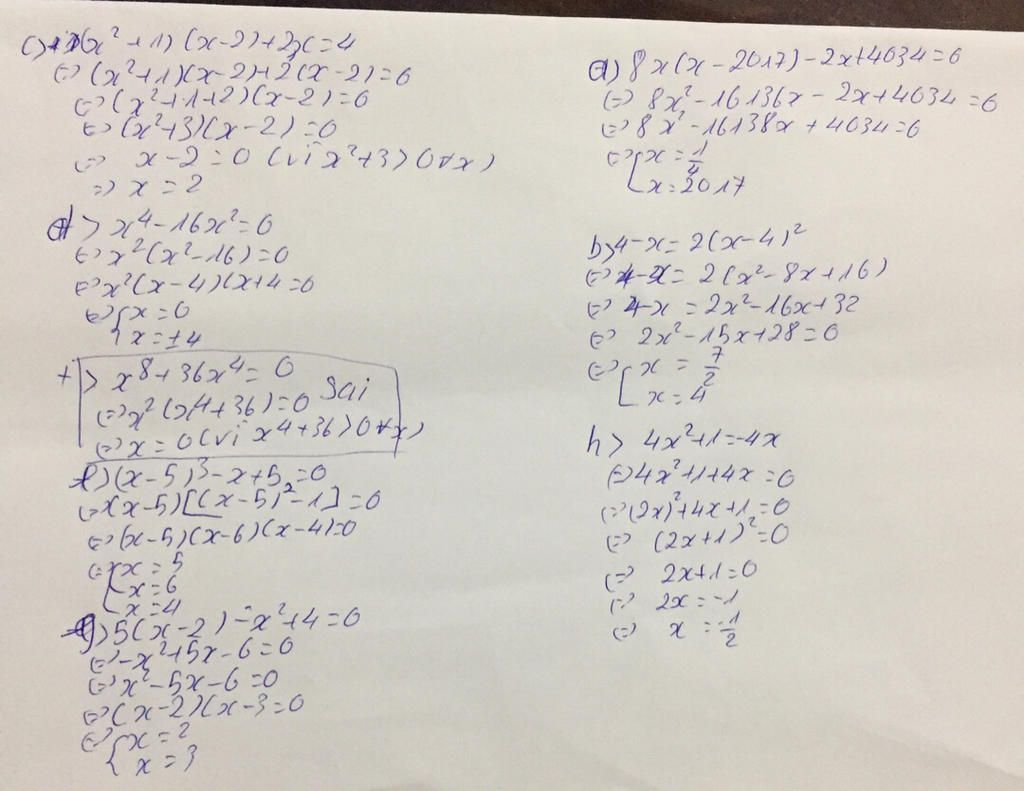 c) (x² + 1) (x - 2) + 2x = 4
(=) (x² + 1)(x - 2) + 2(x - 2) = 0
(=) (x² + 1 + 2)(x - 2) = 0
(=) (x² + 3)(x - 2) = 0
(=) x - 2 = 0 (vì x² + 3 > 0 ∀x)
=) x = 2
d > x⁴ - 16x² = 0
(=) x²(x² - 16) = 0
(=) x²(x - 4)(x + 4 = 0
(=) { x = 0
x = ±4
+ > x⁸ + 36x⁴ = 0
(=) x²(x⁴ + 36) = 0 Sai
(=) x = 0 (vì x⁴ + 36 > 0 ∀x)
f) (x - 5)³ - x + 5 = 0
(=) (x - 5)[(x - 5)² - 1] = 0
(=) (x - 5)(x - 6)(x - 4) = 0
(=) [ x = 5
x = 6
x = 4
g > 5(x - 2) - x² + 4 = 0
(=) -x² + 5x - 6 = 0
(=) x² - 5x - 6 = 0
(=) (x - 2)(x - 3 = 0
(=) { x = 2
x = 3
a) 8x(x - 2017) - 2x + 4034 = 0
(=) 8x² - 16136x - 2x + 4034 = 0
(=) 8x² - 16138x + 4034 = 0
(=) [ x = 1/4
x = 2017
b > 4 - x = 2(x - 4)²
(=) 4 - x = 2(x² - 8x + 16)
(=) 4 - x = 2x² - 16x + 32
(=) 2x² - 15x + 28 = 0
(=) [ x = 7/2
x = 4
h > 4x² + 1 = -4x
(=) 4x² + 1 + 4x = 0
(=) (2x)² + 4x + 1 = 0
(=) (2x + 1)² = 0
(=) 2x + 1 = 0
(=) 2x = -1
(=) x = -1/2